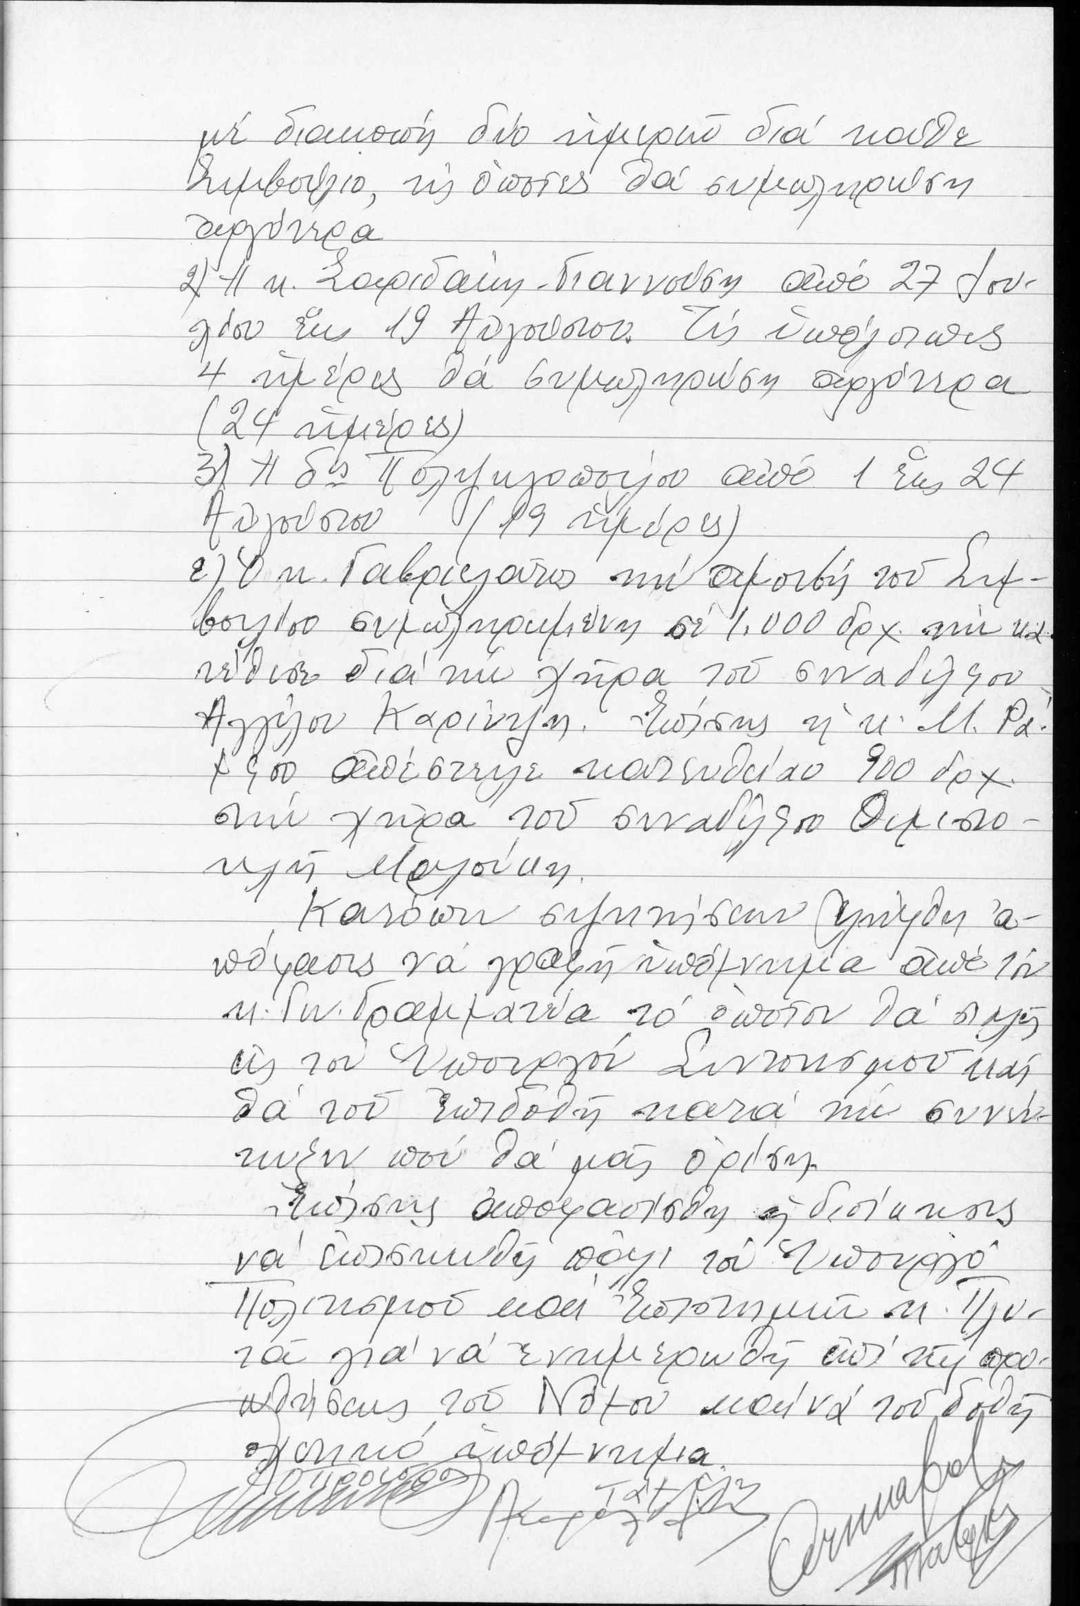 μέ διακοπή δύο ἡμερῶν διά κάθε
Συμβούλιο, τίς ὁποῖες θά συμπληρώση
ἀργότερα
2) Ἡ κ. Σοφιδάκη-Γιαννούση ἀπό 27 Ἰου-
λίου ἕως 19 Αὐγούστου. Τίς ὑπόλοιπες
4 ἡμέρες θά συμπληρώση ἀργότερα
(24 ἡμέρες)
3) Ἡ δὶς Πολυχρονοπούλου ἀπό 1 ἕως 24
Αὐγούστου (19 ἡμέρες)
ε) Ὁ κ. Γαβριελάτος τήν ἀμοιβή τοῦ Συμ-
βουλίου συμπληρωμένη σέ 1.000 δρχ. τήν κα-
τέθεσε διά τήν χήρα τοῦ συναδέλφου
Ἀγγέλου Καρίντζη. Ἐπίσης ἡ κ. Μ.
ἀπέστειλε κατευθείαν 900 δρχ.
στήν χήρα τοῦ συναδέλφου Θεμιστο-
κλῆ
Κατόπιν συζητήσεων ἐλήφθη ἀ-
πόφασις νά γραφῆ ὑπόμνημα ἀπό τόν
κ. Γεν. Γραμματέα τό ὁποῖον θά σταλῆ
εἰς τόν Ὑπουργόν Συντονισμοῦ καί
θά τοῦ ἐπιδοθῆ κατά τήν συνέν-
τευξιν πού θά μᾶς ὁρίση.
Ἐπίσης ἀπεφασίσθη ἡ διοίκησις
νά ἐπισκεφθῆ πάλι τόν Ὑπουργό
Πολιτισμοῦ καί Ἐπιστημῶν κ. Πλυ-
τᾶ γιά νά ἐνημερωθῆ ἐπί τῆς προ-
ωθήσεως τοῦ Νόμου καί νά τοῦ δοθῆ
σχετικό ὑπόμνημα.